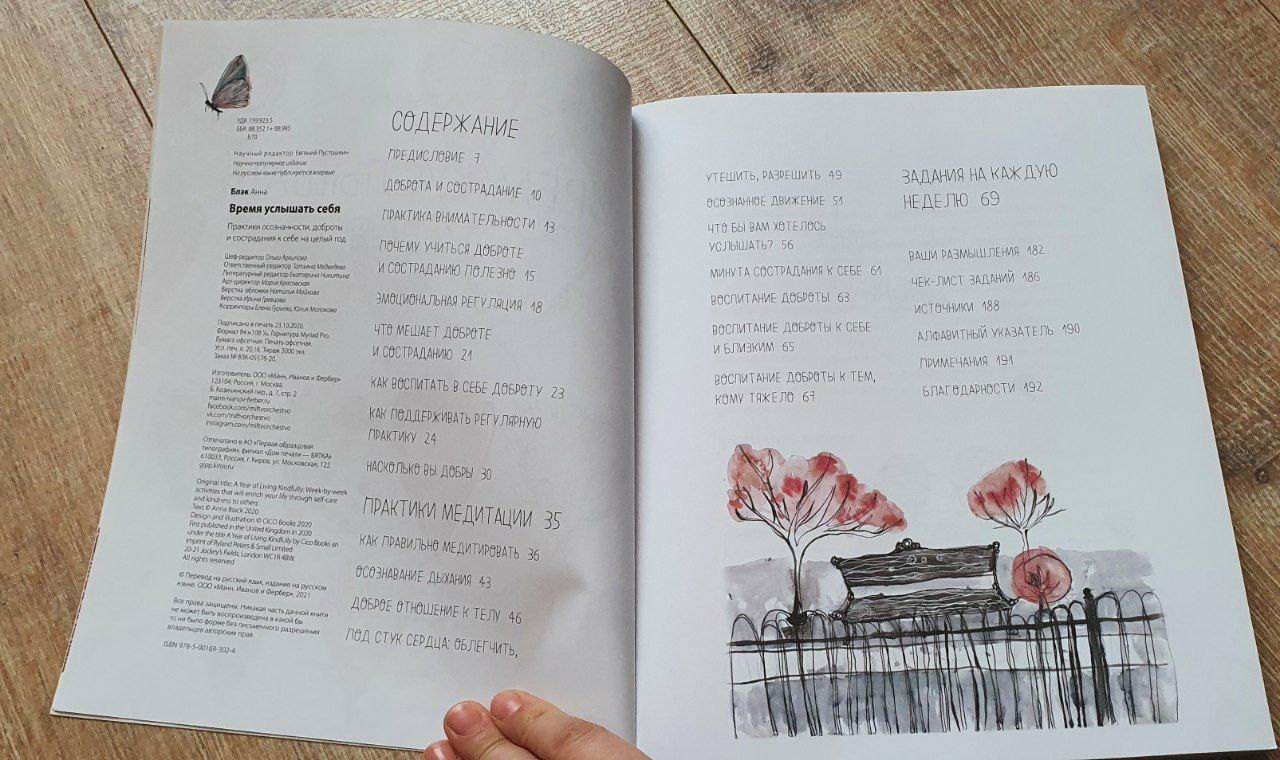 УДК 159.923.5
ББК 88.352.1+ 88.945
Научный редактор Евгений Пустошкин
Научно-популярное издание
На русском языке публикуется впервые
Блэк Анна
Время услышать себя
Практики осознанности, доброты
и сострадания к себе на целый год
Шеф-редактор Ольга Архипова
Ответственный редактор Татьяна Медведева
Литературный редактор Екатерина Никитина
Арт-директор Мария Красовская
Верстка обложки Наталия Майкова
Верстка Ирина Гревцова
Корректоры Елена Гурьева, Юлия Молокова
Подписано в печать 23.10.2020.
Формат 84 × 108 1/16. Гарнитура Myriad Pro.
Бумага офсетная. Печать офсетная.
Усл. печ. л. 20,16. Тираж 3000 экз.
Заказ № ВЗК-05576-20.
Изготовитель: ООО «Манн, Иванов и Фербер»
123104, Россия, г. Москва,
Б. Козихинский пер., д. 7, стр. 2
mann-ivanov-ferber.ru
facebook.com/miftvorchestvo
vk.com/miftvorchestvo
instagram.com/miftvorchestvo
Отпечатано в АО «Первая образцовая
типография», филиал «Дом печати — ВЯТКА»
610033, Россия, г. Киров, ул. Московская, 122.
gipp.kirov.ru
Original title: A Year of Living Kindfully: Week-by-week
activities that will enrich your life through self-care
and kindness to others
Text © Anna Black 2020
Design and illustration © CICO Books 2020
First published in the United Kingdom in 2020
under the title A Year of Living Kindfully by Cico Books an
imprint of Ryland Peters & Small Limited
20-21 Jockey's Fields, London WC1R 4BW.
All rights reserved
© Перевод на русский язык, издание на русском
языке. ООО «Манн, Иванов и Фербер», 2021
Все права защищены. Никакая часть данной книги
не может быть воспроизведена в какой бы
то ни было форме без письменного разрешения
владельцев авторских прав.
ISBN 978-5-00169-302-4
СОДЕРЖАНИЕ
ПРЕДИСЛОВИЕ 7
ДОБРОТА И СОСТРАДАНИЕ 10
ПРАКТИКА ВНИМАТЕЛЬНОСТИ 13
ПОЧЕМУ УЧИТЬСЯ ДОБРОТЕ
И СОСТРАДАНИЮ ПОЛЕЗНО 15
ЭМОЦИОНАЛЬНАЯ РЕГУЛЯЦИЯ 18
ЧТО МЕШАЕТ ДОБРОТЕ
И СОСТРАДАНИЮ 21
КАК ВОСПИТАТЬ В СЕБЕ ДОБРОТУ 23
КАК ПОДДЕРЖИВАТЬ РЕГУЛЯРНУЮ
ПРАКТИКУ 24
НАСКОЛЬКО ВЫ ДОБРЫ 30
ПРАКТИКИ МЕДИТАЦИИ 35
КАК ПРАВИЛЬНО МЕДИТИРОВАТЬ 36
ОСОЗНАВАНИЕ ДЫХАНИЯ 43
ДОБРОЕ ОТНОШЕНИЕ К ТЕЛУ 46
ПОД СТУК СЕРДЦА: ОБЛЕГЧИТЬ,
УТЕШИТЬ, РАЗРЕШИТЬ 49
ОСОЗНАННОЕ ДВИЖЕНИЕ 51
ЧТО БЫ ВАМ ХОТЕЛОСЬ
УСЛЫШАТЬ? 56
МИНУТА СОСТРАДАНИЯ К СЕБЕ 61
ВОСПИТАНИЕ ДОБРОТЫ 63
ВОСПИТАНИЕ ДОБРОТЫ К СЕБЕ
И БЛИЗКИМ 65
ВОСПИТАНИЕ ДОБРОТЫ К ТЕМ,
КОМУ ТЯЖЕЛО 67
ЗАДАНИЯ НА КАЖДУЮ
НЕДЕЛЮ 69
ВАШИ РАЗМЫШЛЕНИЯ 182
ЧЕК-ЛИСТ ЗАДАНИЙ 186
ИСТОЧНИКИ 188
АЛФАВИТНЫЙ УКАЗАТЕЛЬ 190
ПРИМЕЧАНИЯ 191
БЛАГОДАРНОСТИ 192